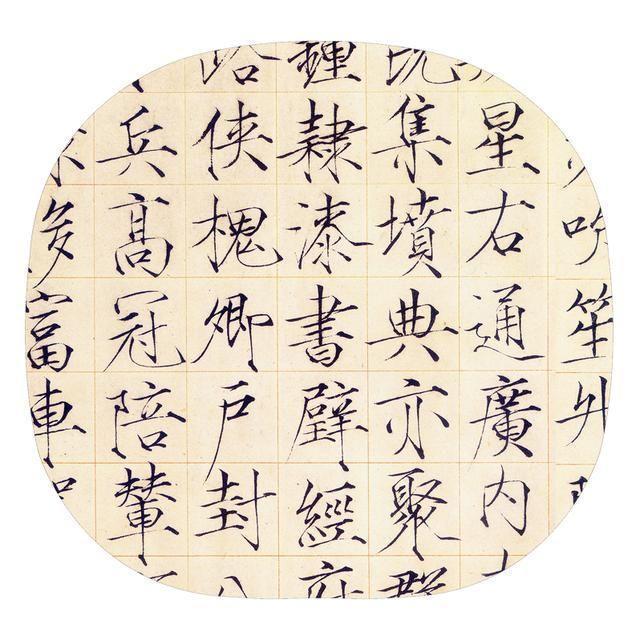 吹笙升
星右通廣內
集墳典亦聚群
鍾隸漆書壁經府
路俠槐卿戶封八
兵高冠陪輦
侈富車